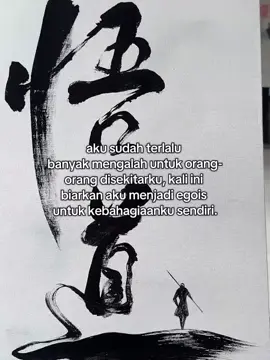 悟道
aku sudah terlalu
banyak mengalah untuk orang-
orang disekitarku, kali ini
biarkan aku menjadi egois
untuk kebahagiaanku sendiri.